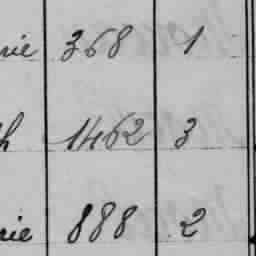 rie 368 1
h 1462 3
rie 888 2